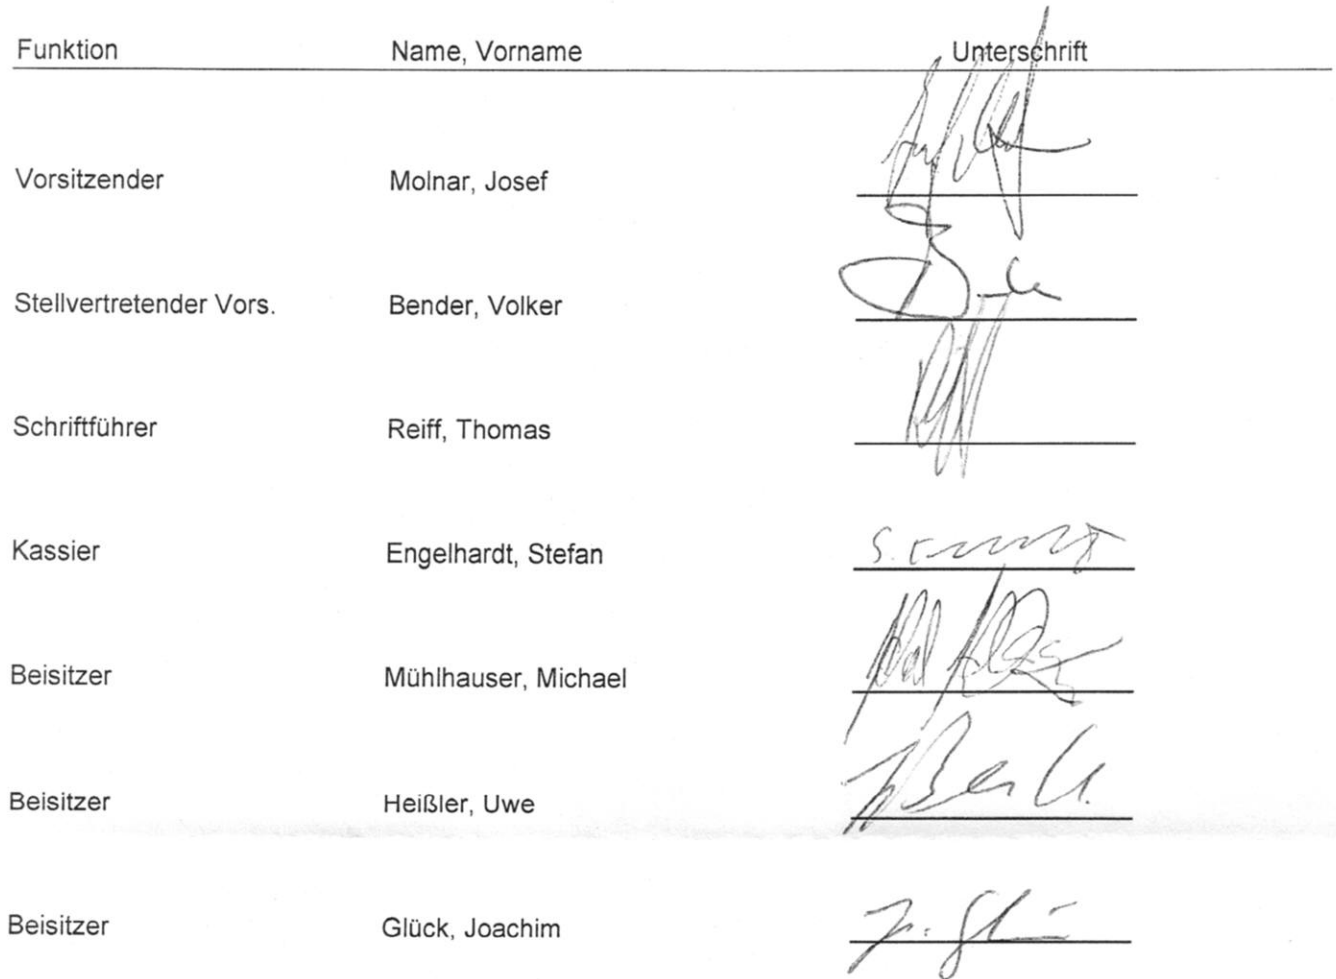 Funktion Name, Vorname Unterschrift
Vorsitzender Molnar, Josef
Stellvertretender Vors. Bender, Volker
Schriftführer Reiff, Thomas
Kassier Engelhardt, Stefan
Beisitzer Mühlhauser, Michael
Beisitzer Heißler, Uwe
Beisitzer Glück, Joachim